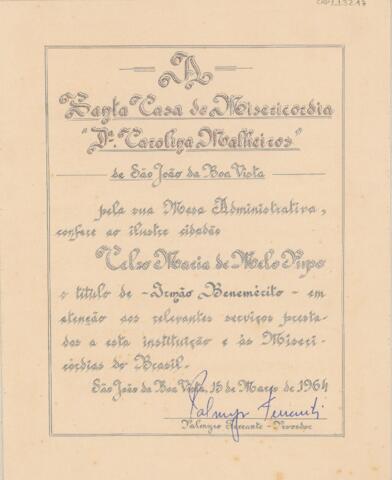 A
Santa Casa de Misericordia
"Dª. Carolina Malheiros"
de São João da Boa Vista
pela sua Mesa Administrativa,
confere ao ilustre cidadão
Celso Maria de Melo Pupo
o titulo de - Irmão Benemérito - em
atenção aos relevantes serviços presta-
dos a esta instituição e às Miseri-
córdias do Brasil.
São João da Boa Vista, 15 de Março de 1964
Palmyro Ferranti
Palmyro Ferrante - Provedor